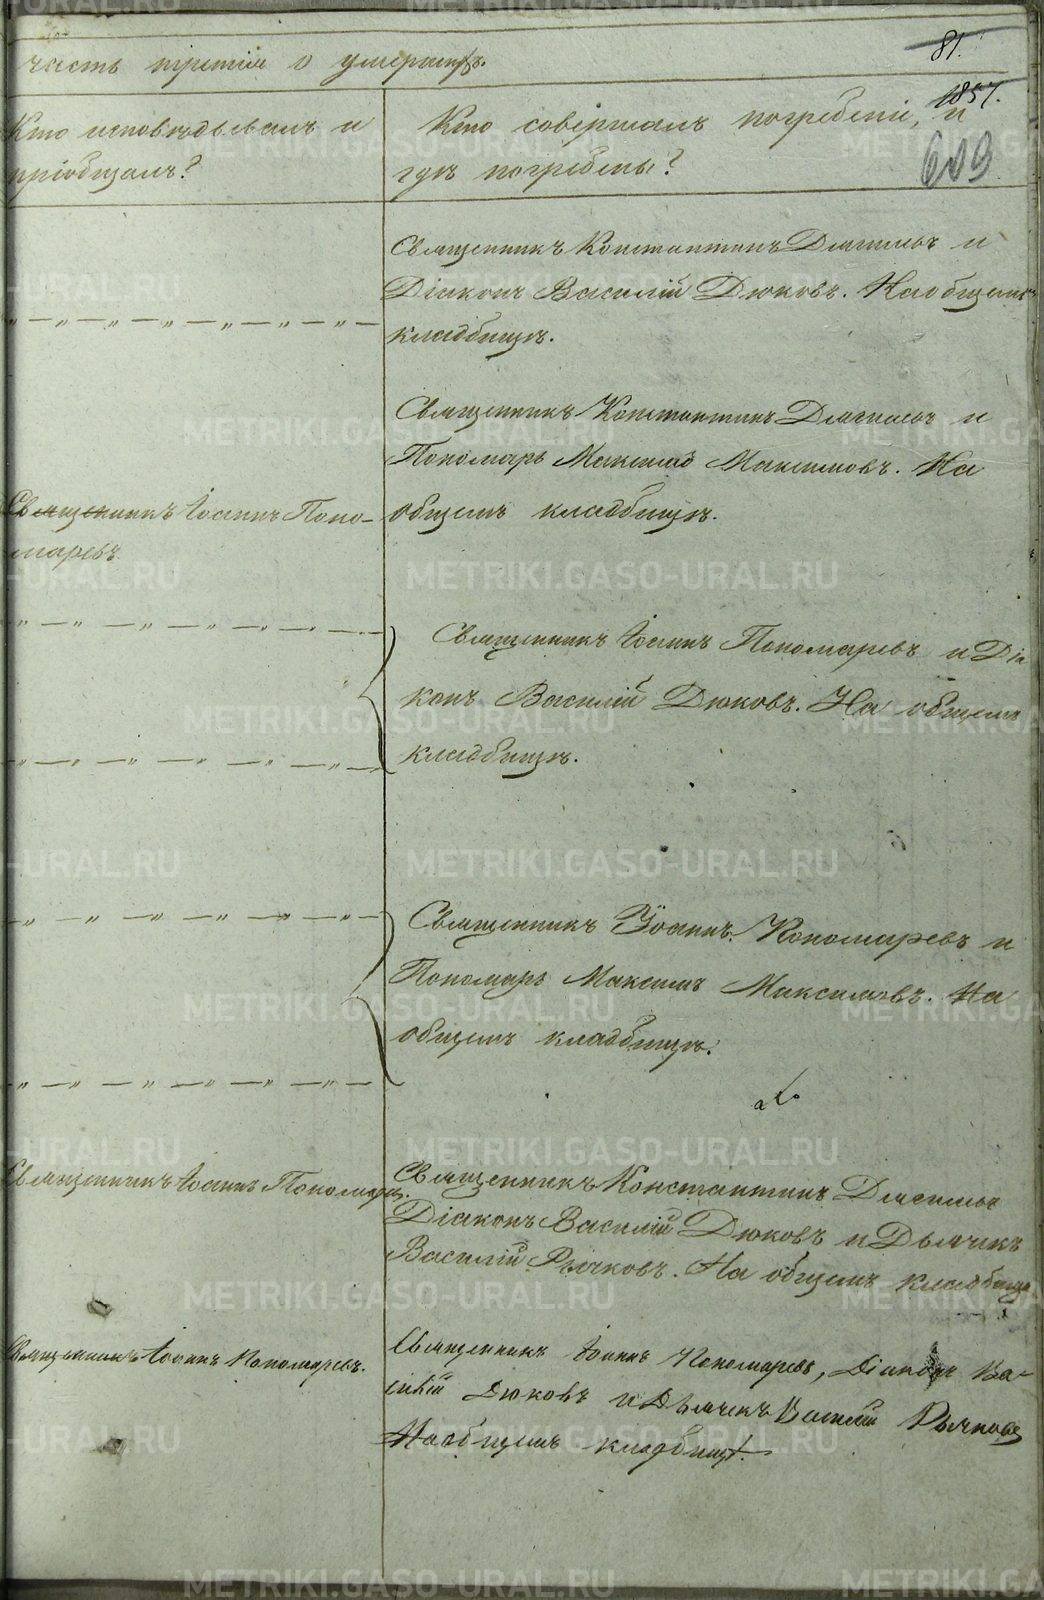 81.
часть третія о умершихъ.
1857.
Кто исповѣдывалъ и
пріобщалъ?
Кто совершалъ погребеніе, и
гдѣ погребены?
609
Священникъ Константинъ и
Діаконъ Василій Дюковъ. На общемъ
кладбищѣ.
Священникъ Константинъ и
Пономарь Максимъ Максимовъ. На
общемъ кладбищѣ.
Священникъ Іоаннъ Поно-
маревъ.
Священникъ Іоаннъ Пономаревъ и Діа
конъ Василій Дюковъ. На общемъ
кладбищѣ.
Священникъ Іоаннъ Пономаревъ и
Пономарь Максимъ Максимовъ. На
общемъ кладбищѣ.
Священникъ Іоаннъ Пономарев.
Священникъ Константинъ
Діаконъ Василій Дюковъ и Дьячекъ
Василій Рычковъ. На общемъ кладбище
Священникъ Іоаннъ Пономаревъ.
Священникъ Іоаннъ Пономаревъ, Діаконъ Ва-
силій Дюковъ и Дьячекъ Василій Рычковъ
На общемъ кладбищѣ.
METRIKI.GASO-URAL.RU